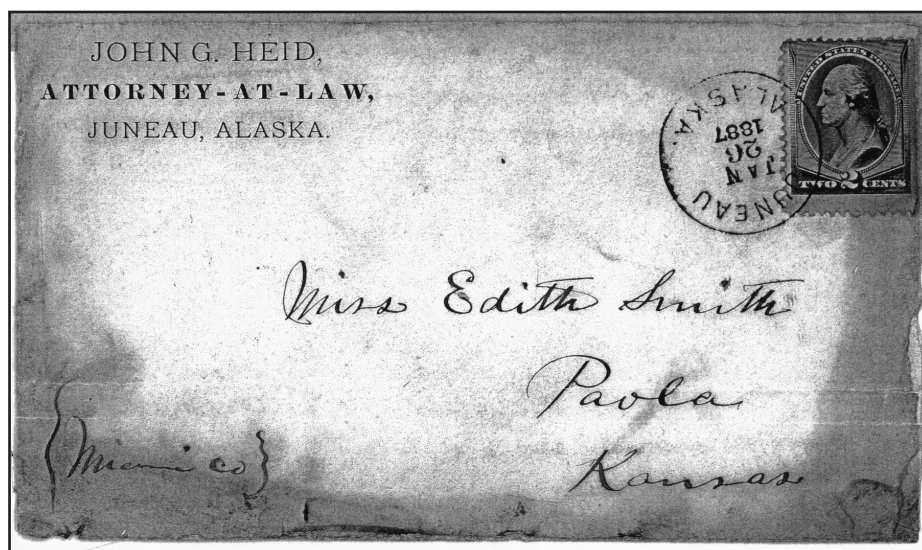 JOHN G. HEID,
ATTORNEY-AT-LAW,
JUNEAU, ALASKA.
JUNEAU
ALASKA.
JAN
26
1887
UNITED STATES POSTAGE
TWO 2 CENTS
Miss Edith Smith
Paola
Kansas
{Miami Co}